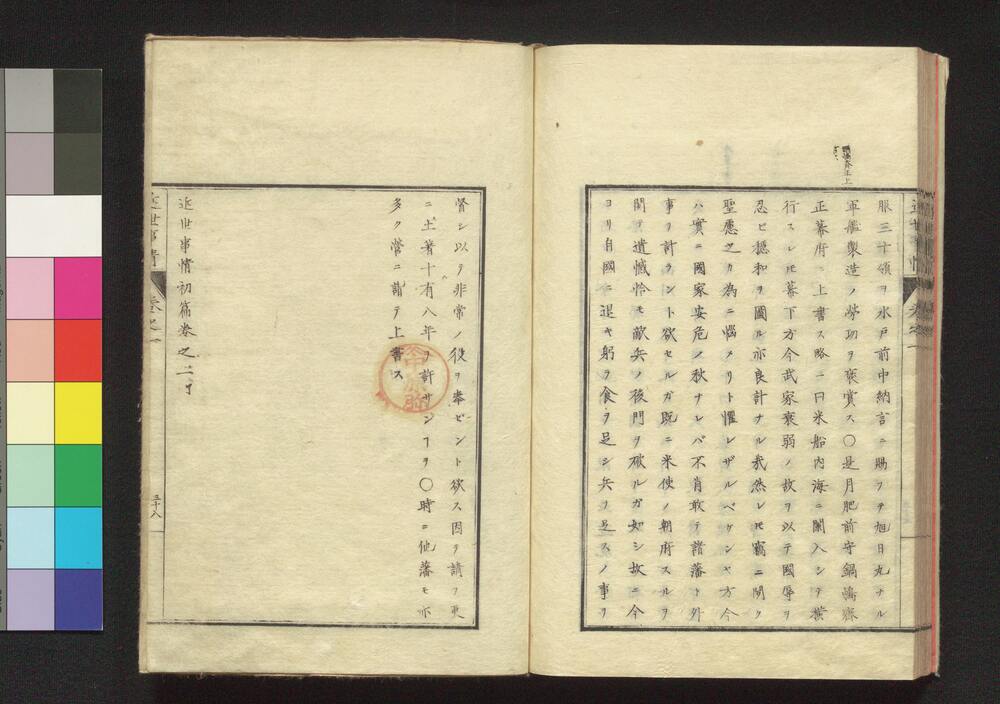 鍋島齊正上
書ス
服三十領ヲ水戸前中納言ニ賜フヲ旭日丸ナル
軍艦製造ノ労功ヲ褒賞ス〇是月肥前守鍋嶌齊
正幕府ニ上書ス略ニ曰米船内海ニ闌入シテ横
行スレ𪜈幕下方今武家衰弱ノ故ヲ以テ國辱ヲ
忍ビ穏和ヲ圖ル亦良計ナル哉然レ𪜈竊ニ聞ク
聖慮之カ為ニ惱メリト懼レザルベケンヤ方今
ハ實ニ國家安危ノ秋ナレバ不肖敢テ諸藩ト外
事ヲ計ラント欲セルガ既ニ米使ノ朝府スルヲ
聞ヲ遺憾恰モ敵兵ノ後門ヲ破ルガ如シ故ニ今
ヨリ自國ニ退キ躬ラ食ヲ足シ兵ヲ足スノ事ヲ
督シ以ヲ非常ノ役ヲ奉ゼント欲ス因ヲ請フ更
ニ土著十有八年ヲ許サンヿヲ〇時ニ他藩モ亦
多ク幣ニ謝テ上書ス
近世事情初篇巻之二
近世事情 巻之一
五十八